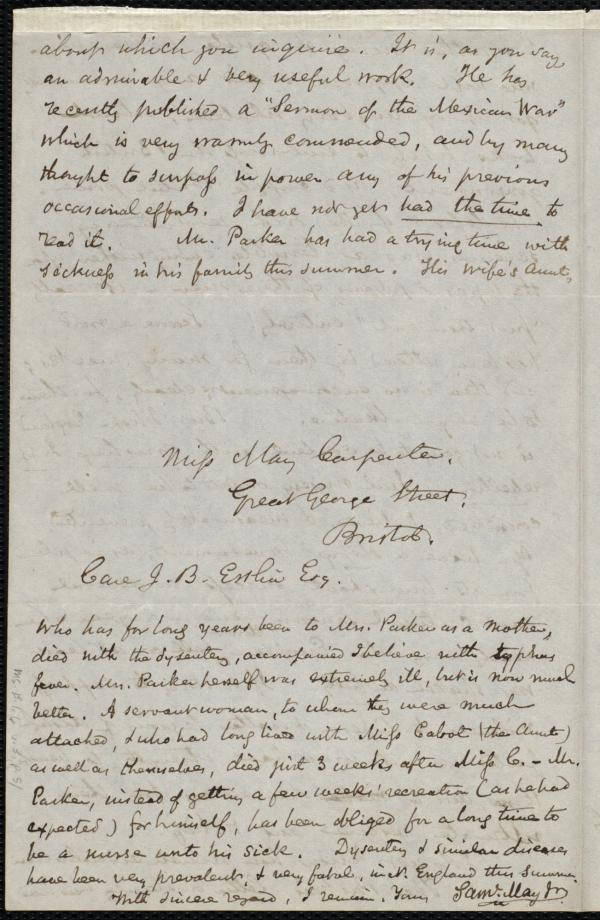 about which you inquire. It is, as you say,
an admirable & very useful work. He has
recently published a "Sermon of the Mexican War"
which is very warmly commended, and by many
thought to surpass in power any of his previous
occasional efforts. I have not yet had the time to
read it. Mr. Parker has had a trying time with
sickness in his family this summer. His wife's Aunt,
Miss Mary Carpenter,
Great George Street,
Bristol.
Care J. B. Estlin Esq.
who has for long years been to Mrs. Parker as a mother,
died with the dysentery, accompanied I believe with typhus
fever. Mrs. Parker herself was extremely ill, but is now much
better. A servant woman, to whom they were much
attached, & who had long lived with Miss Cabot (the Aunt)
as well as themselves, died just 3 weeks after Miss C. – Mr.
Parker, instead of getting a few weeks' recreation (as he had
expected) for himself, has been obliged for a long time to
be a nurse unto his sick. Dysentery & similar diseases
have been very prevalent, & very fatal, in N. England this summer.
With sincere regard, I remain, Yours Saml. May Jr.